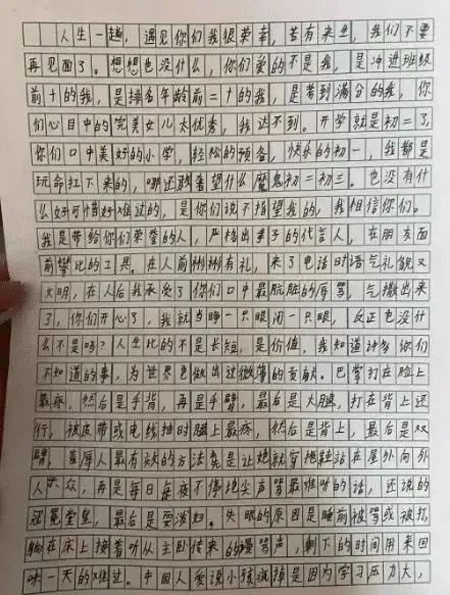 人生一趟，遇见你们我很荣幸，若有来生，我们不要
再见面了。想想也没什么，你们爱的不是我，是冲进班级
前十的我，是排名年龄前二十的我，是考到满分的我，你
们心目中的完美女儿太优秀，我达不到。开学就是初二了，
你们口中美好的小学，轻松的预备，快乐的初一，我都是
玩命扛下来的，哪还敢奢望什么魔鬼初二初三。也没有什
么好可惜好难过的，是你们说不指望我的，我相信你们。
我是带给你们荣誉的人，严格出孝子的代言人，在朋友面
前攀比的工具。在人前彬彬有礼，来了电话时语气礼貌又
文明，在人后我承受了你们口中最肮脏的辱骂，气撒出来
了，你们开心了，我就当睁一只眼闭一只眼，反正也没什
么不是吗？人生比的不是长短，是价值，我知道许多你们
不知道的事，为世界也做出过微薄的贡献。巴掌打在脸上
最疼，然后是手背，再是手臂，最后是大腿，打在背上还
行，被皮带或电线抽时腿上最疼，然后是背上，最后是双
臂，羞辱人最有效的方法竟是让她就穿拖鞋站在屋外向外
人示众，再是每日每夜不停地尖声骂最难听的话，还说的
冠冕堂皇，最后是耍泼妇。失眠的原因是睡前被骂或被打，
躺在床上接着听从主卧传来的谩骂声，剩下的时间用来回
味一天的难过。中国人爱说小孩疯掉是因为学习压力大，